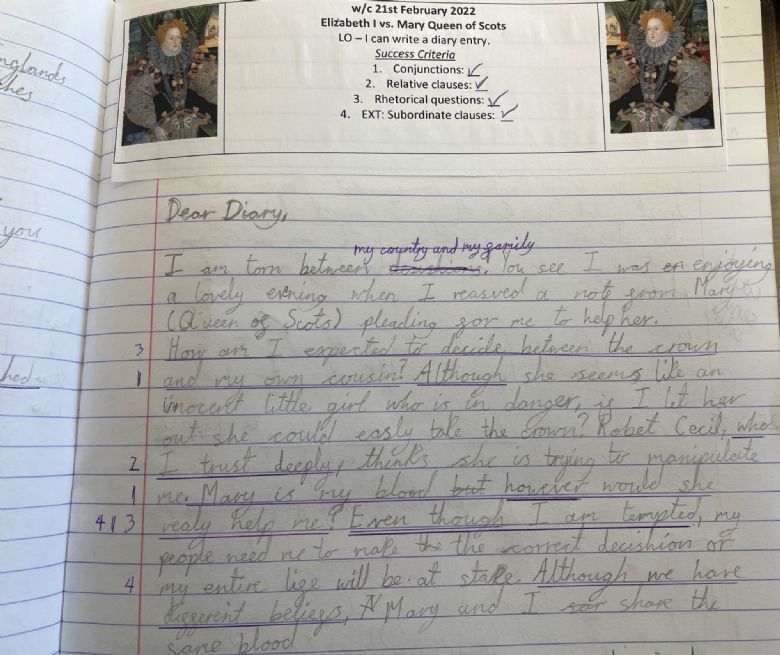 nglands
hes
you
hed
w/c 21st February 2022
Elizabeth I vs. Mary Queen of Scots
LO – I can write a diary entry.
Success Criteria
1. Conjunctions: ✓
2. Relative clauses: ✓
3. Rhetorical questions: ✓
4. EXT: Subordinate clauses: ✓
Dear Diary,
my country and my family
I am torn between decishions. You see I was en enjoying
a lovely evening when I reasved a note from Mary
(Queen of Scots) pleading for me to help her.
3 How am I expected to decide between the crown
1 and my own cousin? Although she seems like an
innocent little girl who is in danger, if I let her
out she could easly take the crown? Robet Cecil, who
2 I trust deeply, thinks she is trying to manipulate
1 me. Mary is my blood but however would she
4 1 3 realy help me? Even though I am tempted, my
people need me to make the the correct decishion or
4 my entire life will be at stake. Although we have
different beliefs, Mary and I share the
same blood